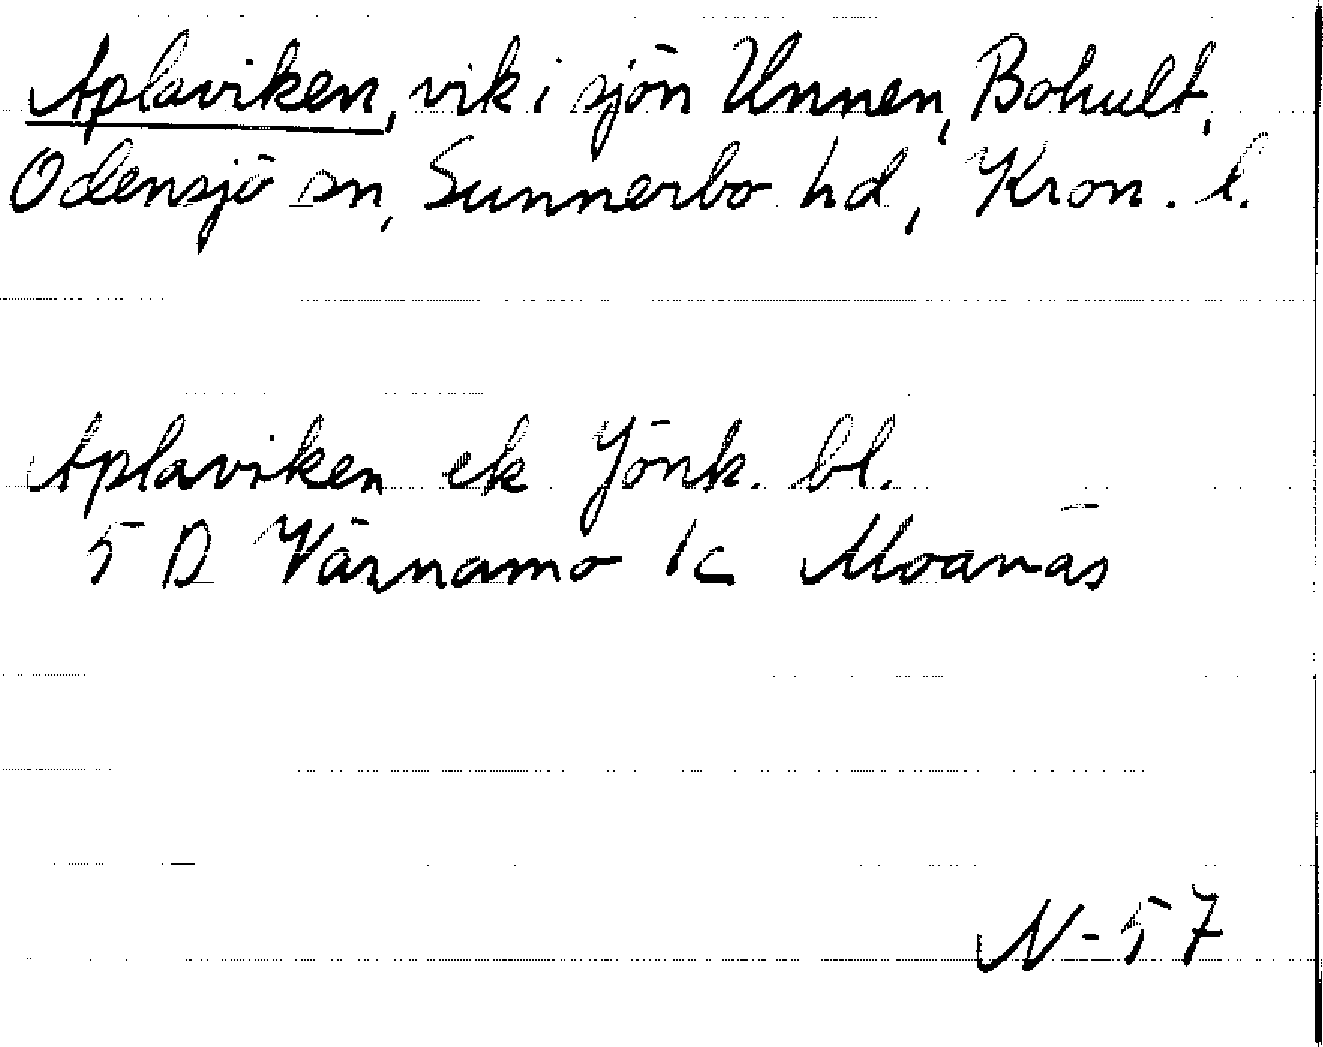 Aplaviken, vik i sjön Unnen, Bohult,
Odensjö sn, Sunnerbo hd, Kron. l.
Aplaviken ek Jönk. bl.
5 D Värnamo 1c Moanäs
N-57